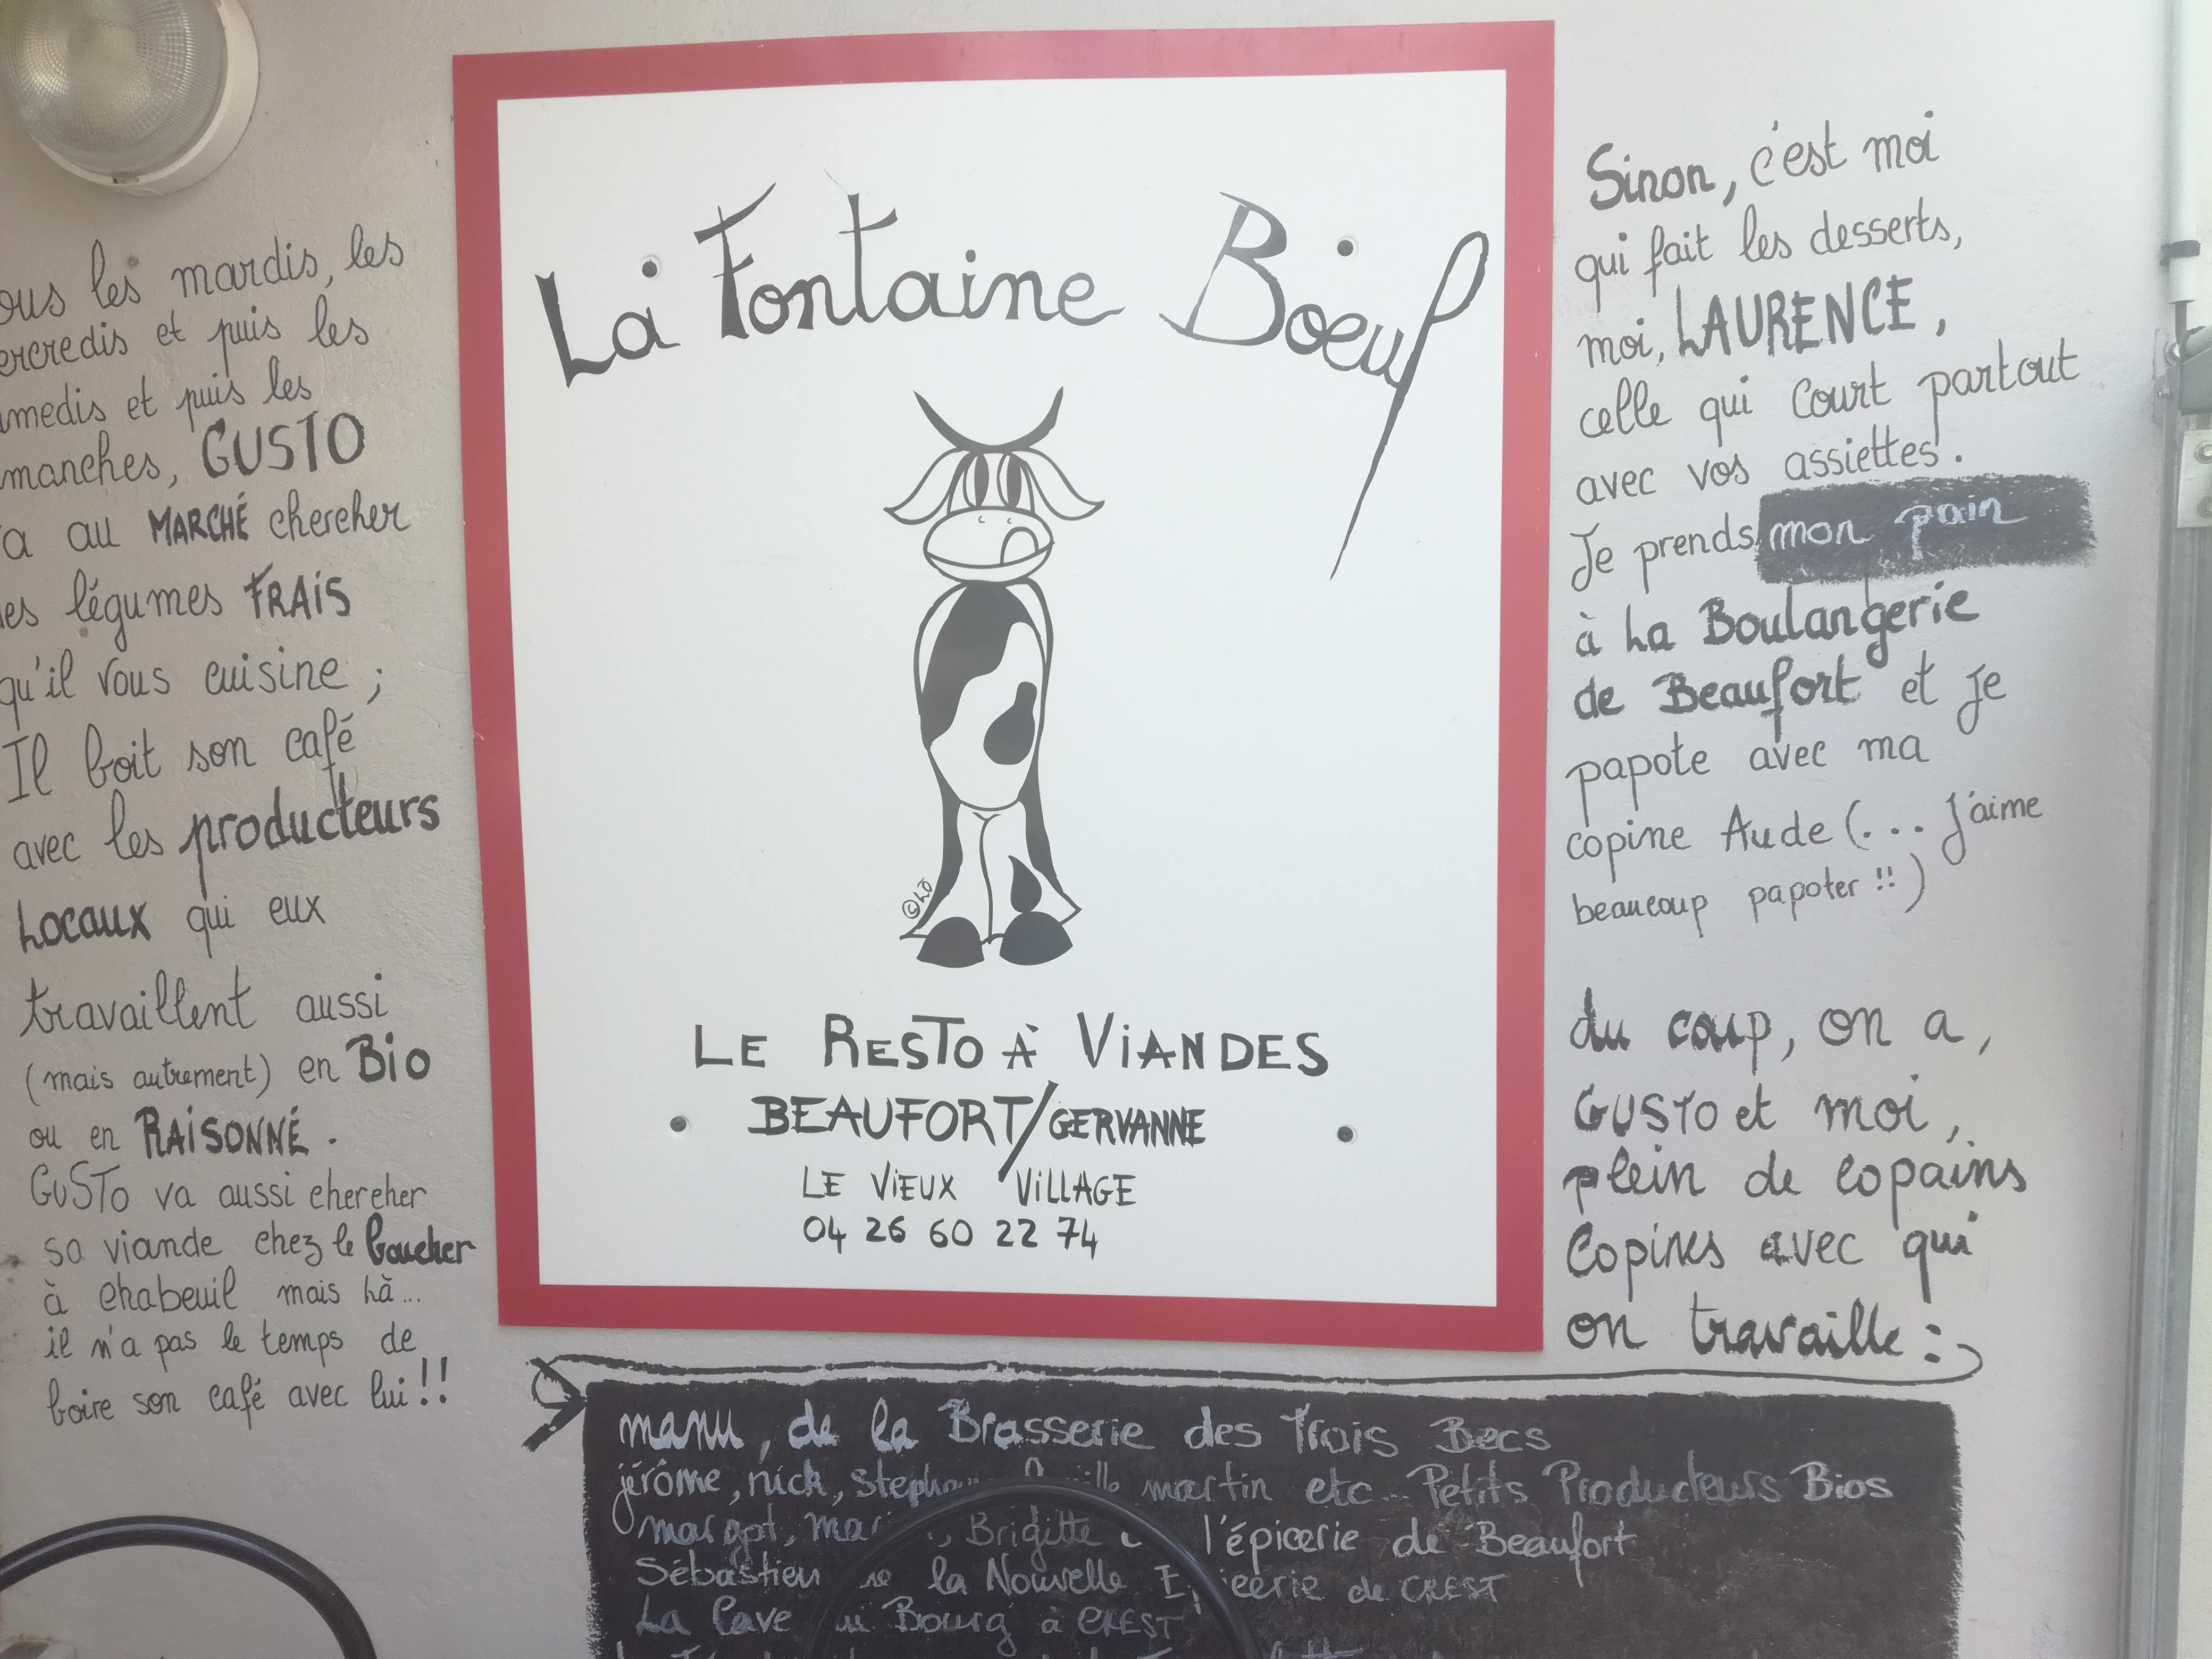 ous les mardis, les
ercredis et puis les
amedis et puis les
manches, GUSTO
a au MARCHÉ chercher
es légumes FRAIS
qu'il vous cuisine ;
Il boit son café
avec les producteurs
Locaux qui eux
travaillent aussi
(mais autrement) en Bio
ou en RAISONNÉ .
GUSTO va aussi chercher
sa viande chez le boucher
à chabeuil mais là...
il n'a pas le temps de
boire son café avec lui !!
La Fontaine Boeuf
©Lô
LE RESTO À VIANDES
BEAUFORT/GERVANNE
LE VIEUX VILLAGE
04 26 60 22 74
Sinon, c'est moi
qui fait les desserts,
moi, LAURENCE,
celle qui court partout
avec vos assiettes.
Je prends mon pain
à la Boulangerie
de Beaufort et je
papote avec ma
copine Aude (... j'aime
beaucoup papoter !!)
du coup, on a,
GUSTO et moi,
plein de copains
copines avec qui
on travaille :
manu, de la Brasserie des Trois Becs
jérôme, nick, martin etc... Petits Producteurs Bios
margot, Brigitte l'épicerie de Beaufort
Sébastien la Nouvelle de CREST
La Cave Bourg à CREST